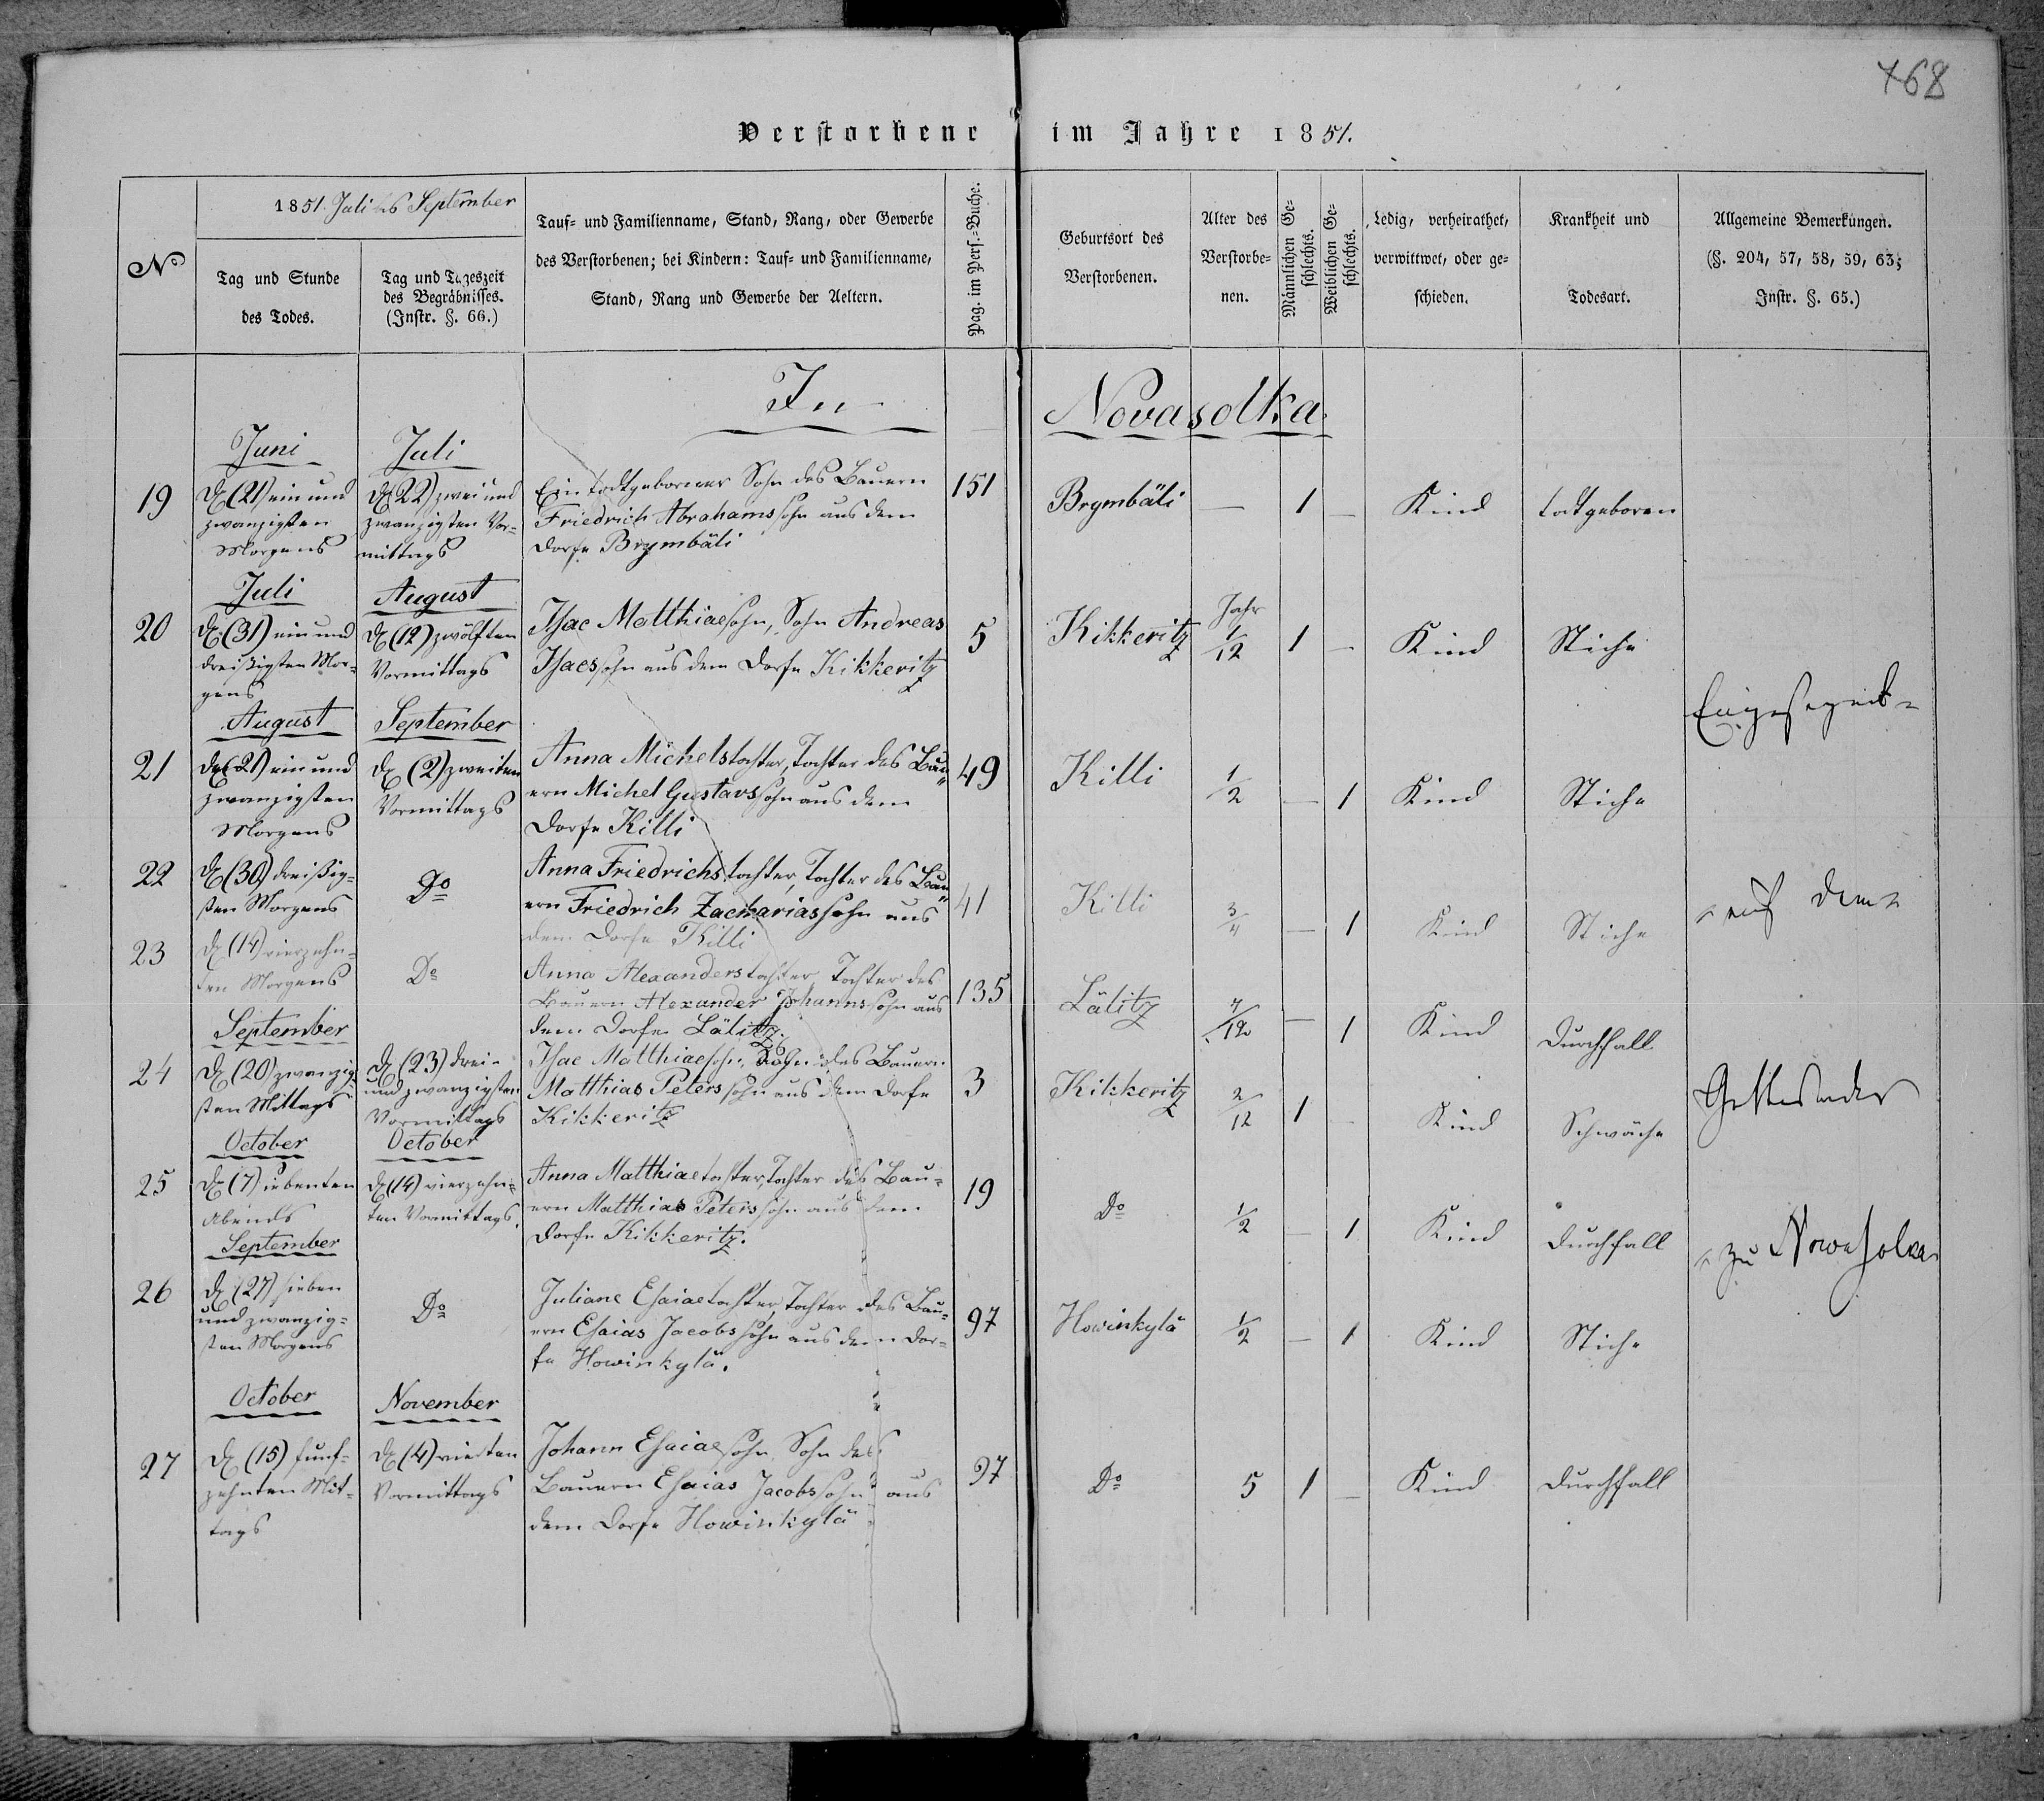 768
Verstorbene im Jahre 1851.
1851. Juli bis September
No
Tag und Stunde
des Todes.
Tag und Tageszeit
des Begräbnisses.
(Instr. §. 66.)
Tauf- und Familienname, Stand, Rang, oder Gewerbe
des Verstorbenen; bei Kindern: Tauf- und Familienname,
Stand, Rang und Gewerbe der Aeltern.
Pag. im Pers.-Buche.
Geburtsort des
Verstorbenen.
Alter des
Verstorbe-
nen.
Männlichen Ge-
schlechts.
Weiblichen Ge-
schlechts.
Ledig, verheirathet,
verwittwet, oder ge-
schieden.
Krankheit und
Todesart.
Allgemeine Bemerkungen.
(§. 204, 57, 58, 59, 63;
Instr. §. 65.)
In Novasolka
19
Juni
d. (21) ein und
zwanzigsten
Morgens
Juli
d. (22) zwei und
zwanzigsten Vor-
mittags
Ein todtgeborener Sohn des Bauern
Friedrich Abrahamssohn aus dem
Dorfe Brymbäli
151
Brymbäli
— 1 —
Kind
todtgeboren
20
Juli
d. (31) ein und
dreißigsten Mor-
gens
August
d. (12) zwölften
Vormittags
Isac Matthiaesohn, Sohn Andreas
Isacssohn aus dem Dorfe Kikkeritz
5
Kikkeritz
Jahr
1/12
1 —
Kind
Stiche
21
August
d. (21) ein und
zwanzigsten
Morgens
September
d. (2) zweiten
Vormittags
Anna Michelstochter, Tochter des Bau-
ern Michel Gustavssohn aus dem
Dorfe Killi
49
Killi
1/2
— 1
Kind
Stiche
22
d. (30) dreißig-
sten Morgens
Do
Anna Friedrichstochter, Tochter des Bau-
ern Friedrich Zachariassohn aus
dem Dorfe Killi
41
Killi
3/4
— 1
Kind
Stiche
23
d. (14) vierzehn-
ten Morgens
Do
Anna Alexanderstochter Tochter des
Bauern Alexander Johannssohn aus
dem Dorfe Lälitz.
135
Lälitz
7/12
— 1
Kind
Durchfall
24
September
d. (20) zwanzig-
sten Mittags
d. (23) drei-
und zwanzigsten
Vormittags
Isac Matthiaesohn, Sohn des Bauern
Matthias Peterssohn aus dem Dorfe
Kikkeritz
3
Kikkeritz
2/12
1 —
Kind
Schwäche
25
October
d. (7) siebenten
Abends
October
d. (14) vierzehn-
ten Vormittags.
Anna Matthiaetochter, Tochter des Bau-
ern Matthias Peterssohn aus dem
Dorfe Kikkeritz.
19
Do
1/2
— 1
Kind
Durchfall
26
September
d. (27) sieben
und zwanzig-
sten Morgens
Do
Juliane Esaiaetochter, Tochter des Bau-
ern Esaias Jacobssohn aus dem Dor-
fe Howinkylä.
97
Howinkylä
1/2
— 1
Kind
Stiche
27
October
d. (15) funf-
zehnten Mit-
tags
November
d. (4) vierten
Vormittags
Johann Esaiaesohn Sohn des
Bauern Esaias Jacobssohn aus
dem Dorfe Howinkylä
97
Do
5
1 —
Kind
Durchfall
Eingesegnet
auf dem
Gottesacker
zu Novasolka